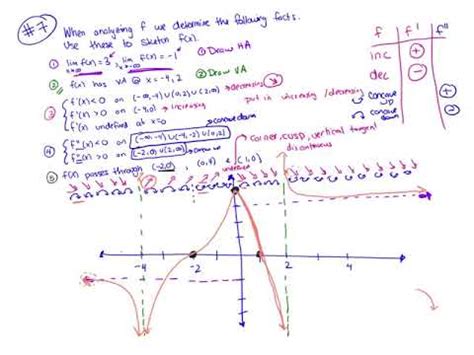 #7
When analyzing f we determine the following facts.
Use these to sketch f(x).
① lim f(x) = 3 lim f(x) = -1 ① Draw HA
② f(x) has VA @ x = -4, 2 ② Draw VA
③ f'(x) < 0 on (-∞,-4) ∪ (2,∞) → decreasing
f'(x) > 0 on (-4,0) → increasing put in increasing/decreasing
f'(x) undefined at x=0 concave down
④ f''(x) < 0 on (-∞,-4) ∪ (-4,-2) ∪ (0,2)
f''(x) > 0 on (-2,0) ∪ (2,∞) → concave up
corner, cusp, vertical tangent
discontinuous
⑤ f(x) passes through (-2,0), (0,4) & (1,0)
undefined
f f' f''
inc +
dec -
concave up +
concave down -
-4 -2 2 4